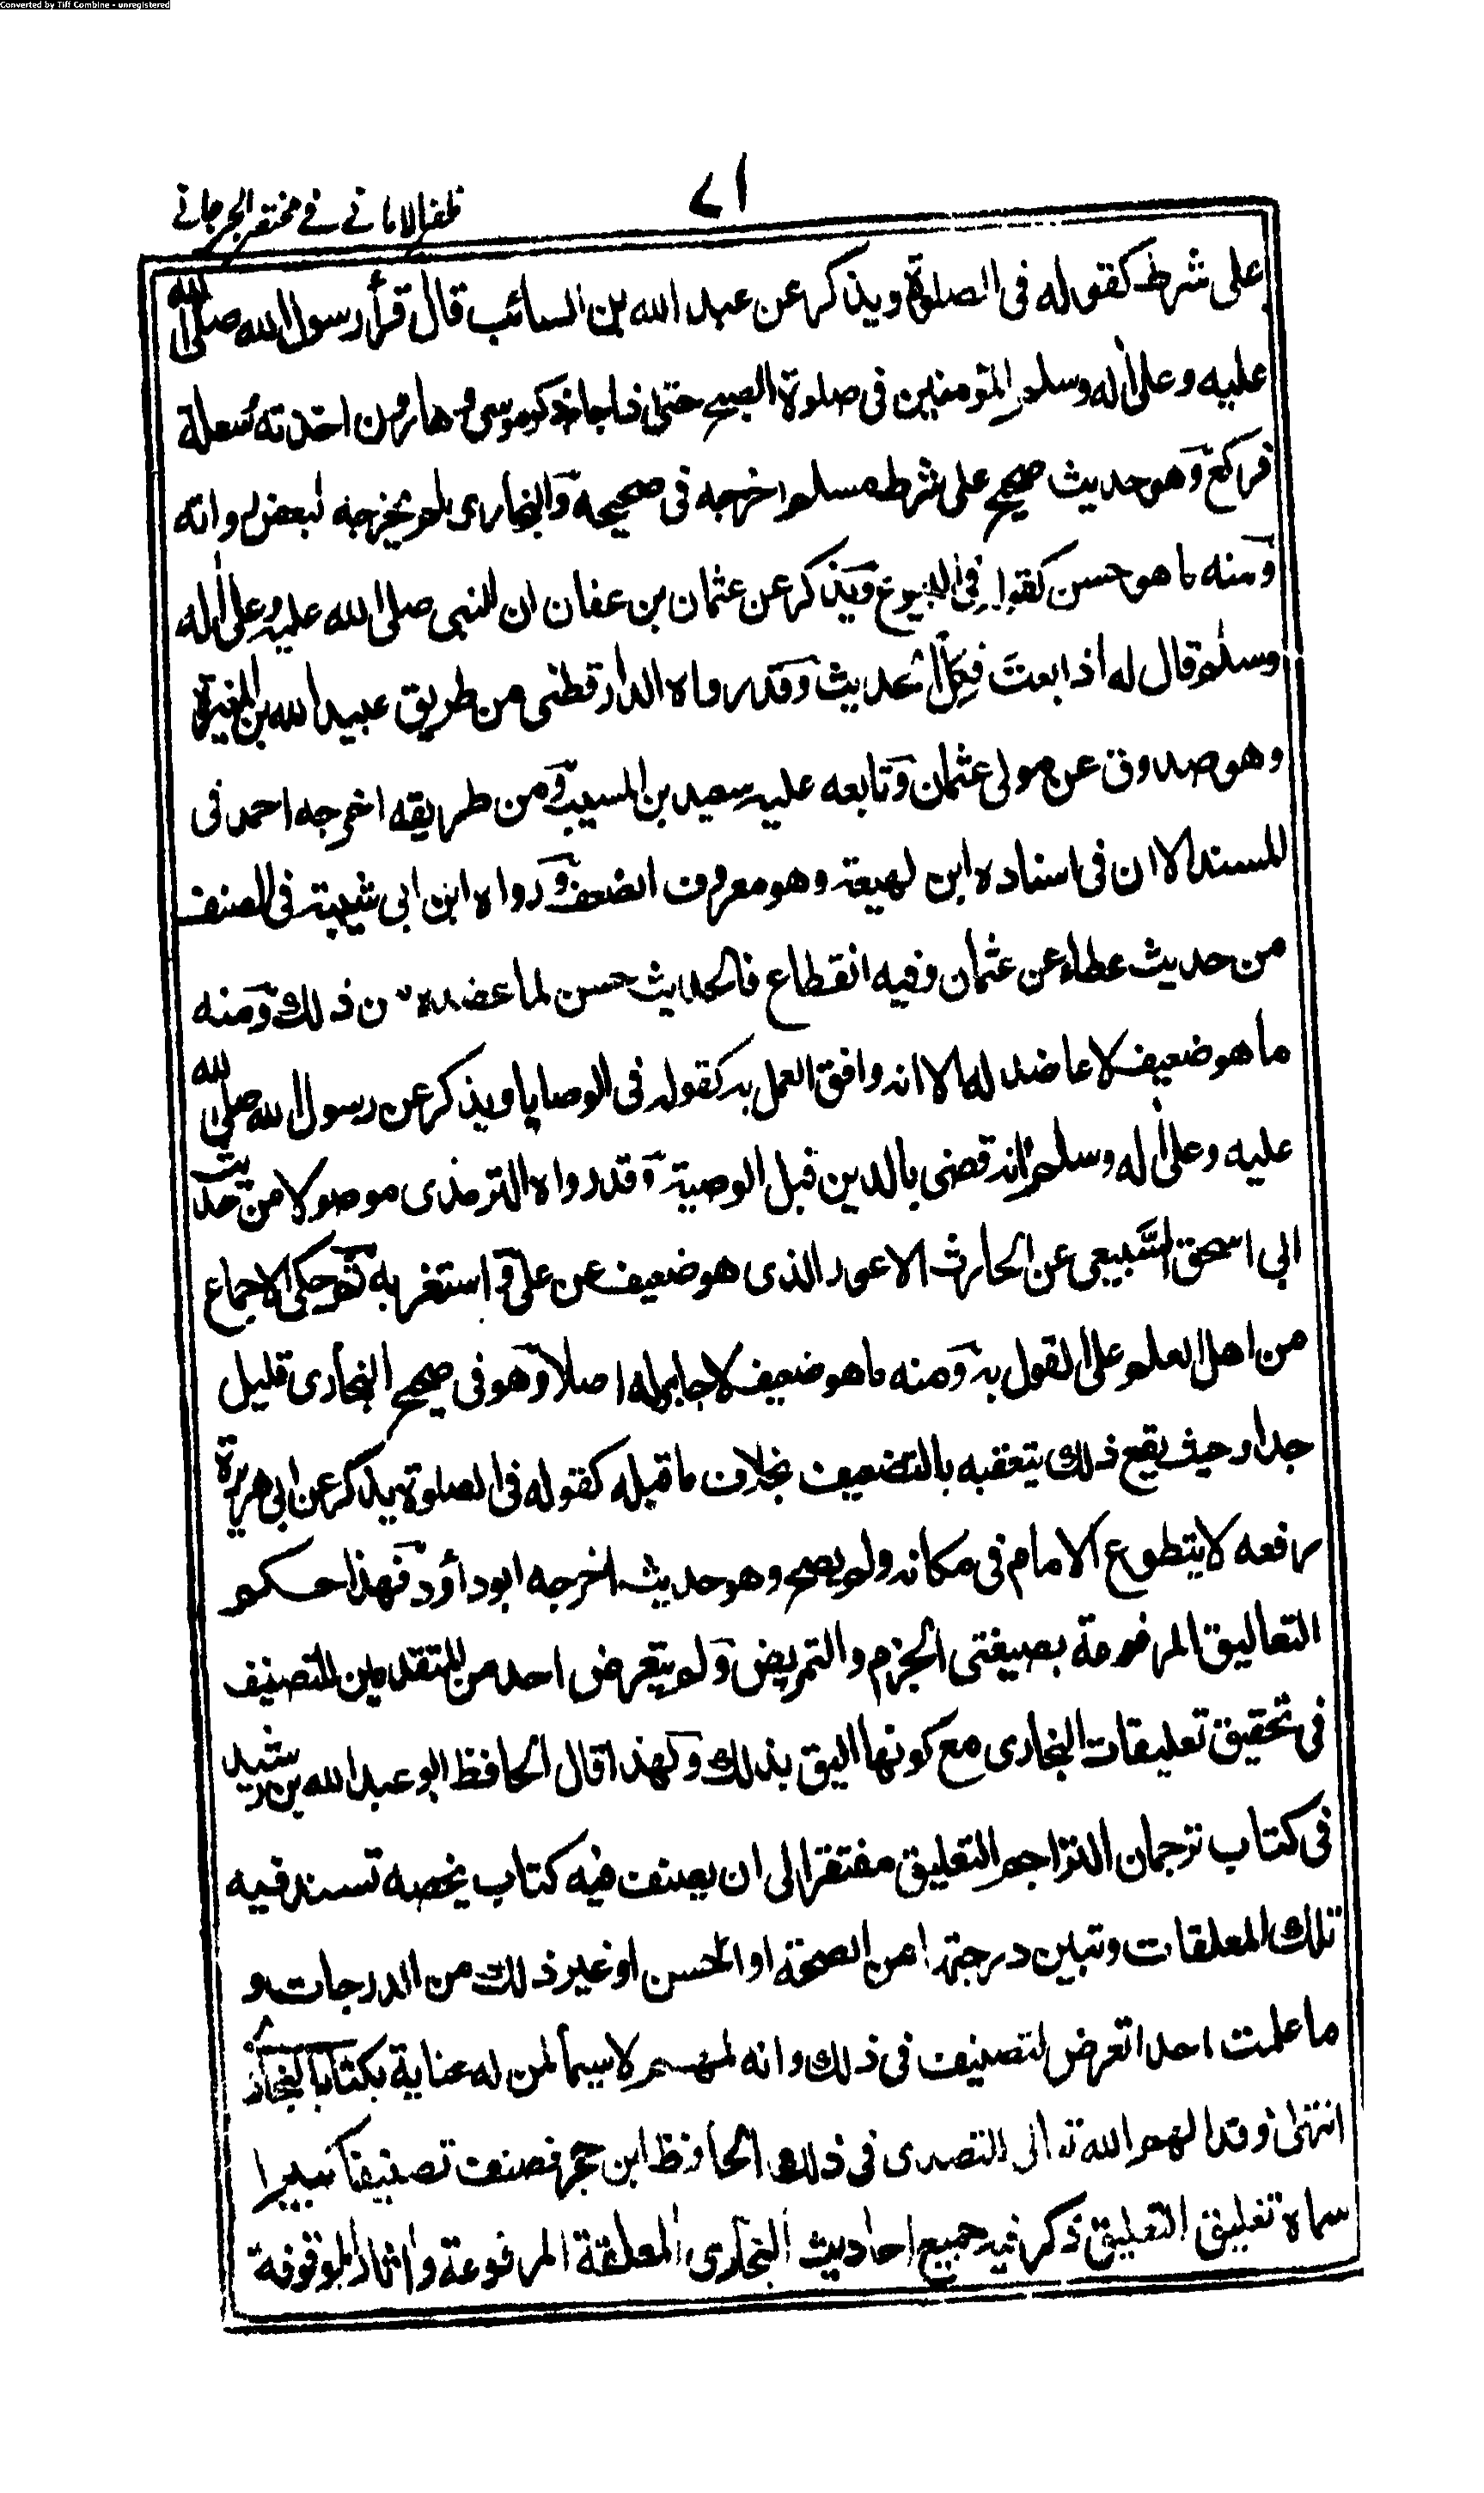 Converted by Tiff Combine - unregistered
٨١
ظفر الامانے فے مختصر الجرجانے
على شرطه كقوله فى الصلوة ويذكر عن عبد الله بن السائب قال قرأ رسول الله صلى الله
عليه وعلى اله وسلم المؤمنين فى صلوة الصبح حتى اذا جاء ذكر موسى وهارون اخذته سعلة
فركع وهو حديث صحيح على شرط مسلم اخرجه فى صحيحه والبخارى لم يخرجه لبعض رواته
ومنه ما هو حسن كقوله فى البيوع ويذكر عن عثمان بن عفان ان النبى صلى الله عليه وعلى اله
وسلم قال له اذا بعت فكل الحديث وقد رواه الدارقطنى من طريق عبيد الله بن المغيرة
وهو صدوق عن مولى عثمان وتابعه عليه سعيد بن المسيب ومن طريقه اخرجه احمد فى
المسند الا ان فى اسناده ابن لهيعة وهو معروف الضعف ورواه ابن ابى شيبة فى المصنف
من حديث عطاء عن عثمان وفيه انقطاع فالحديث حسن لما عضده من ذلك ومنه
ما هو ضعيف لا عاضد له الا انه وافق العمل به كقوله فى الوصايا ويذكر عن رسول الله صلى الله
عليه وعلى اله وسلم انه قضى بالدين قبل الوصية وقد رواه الترمذى موصولا من حديث
ابى اسحق السبيعى عن الحارث الاعور الذى هو ضعيف عن على واستغربه ثم حكى الاجماع
من اهل العلم على القول به ومنه ما هو ضعيف لا جابر له اصلا وهو فى صحيح البخارى قليل
جدا وحيث يقع ذلك يتعقبه بالتضعيف بخلاف ما قبله كقوله فى الصلوة يذكر عن ابى هريرة
رفعه لا يتطوع الامام فى مكانه ولم يصح وهو حديث اخرجه ابو داؤد فهذا حكم
التعاليق المرفوعة بصيغتى الجزم والتمريض ولم يتعرض احد من المتقدمين للتصنيف
فى تحقيق تعليقات البخارى مع كونها اليق بذلك ولهذا قال الحافظ ابو عبد الله بن رشيد
فى كتاب ترجمان التراجم التعليق مفتقر الى ان يصنف فيه كتاب يخصه تسند فيه
تلك المعلقات وتبين درجتها من الصحة او الحسن او غير ذلك من الدرجات و
ما علمت احدا تعرض لتصنيف فى ذلك وانه لمهم لا سيما لمن له عناية بكتاب البخارى
انتهى وقد الهم الله تعالى التصدى فى ذلك الحافظ ابن حجر فصنف تصنيفا كبيرا
سماه تغليق التعليق ذكر فيه جميع احاديث البخارى المعلقة المرفوعة واثاره الموقوفة